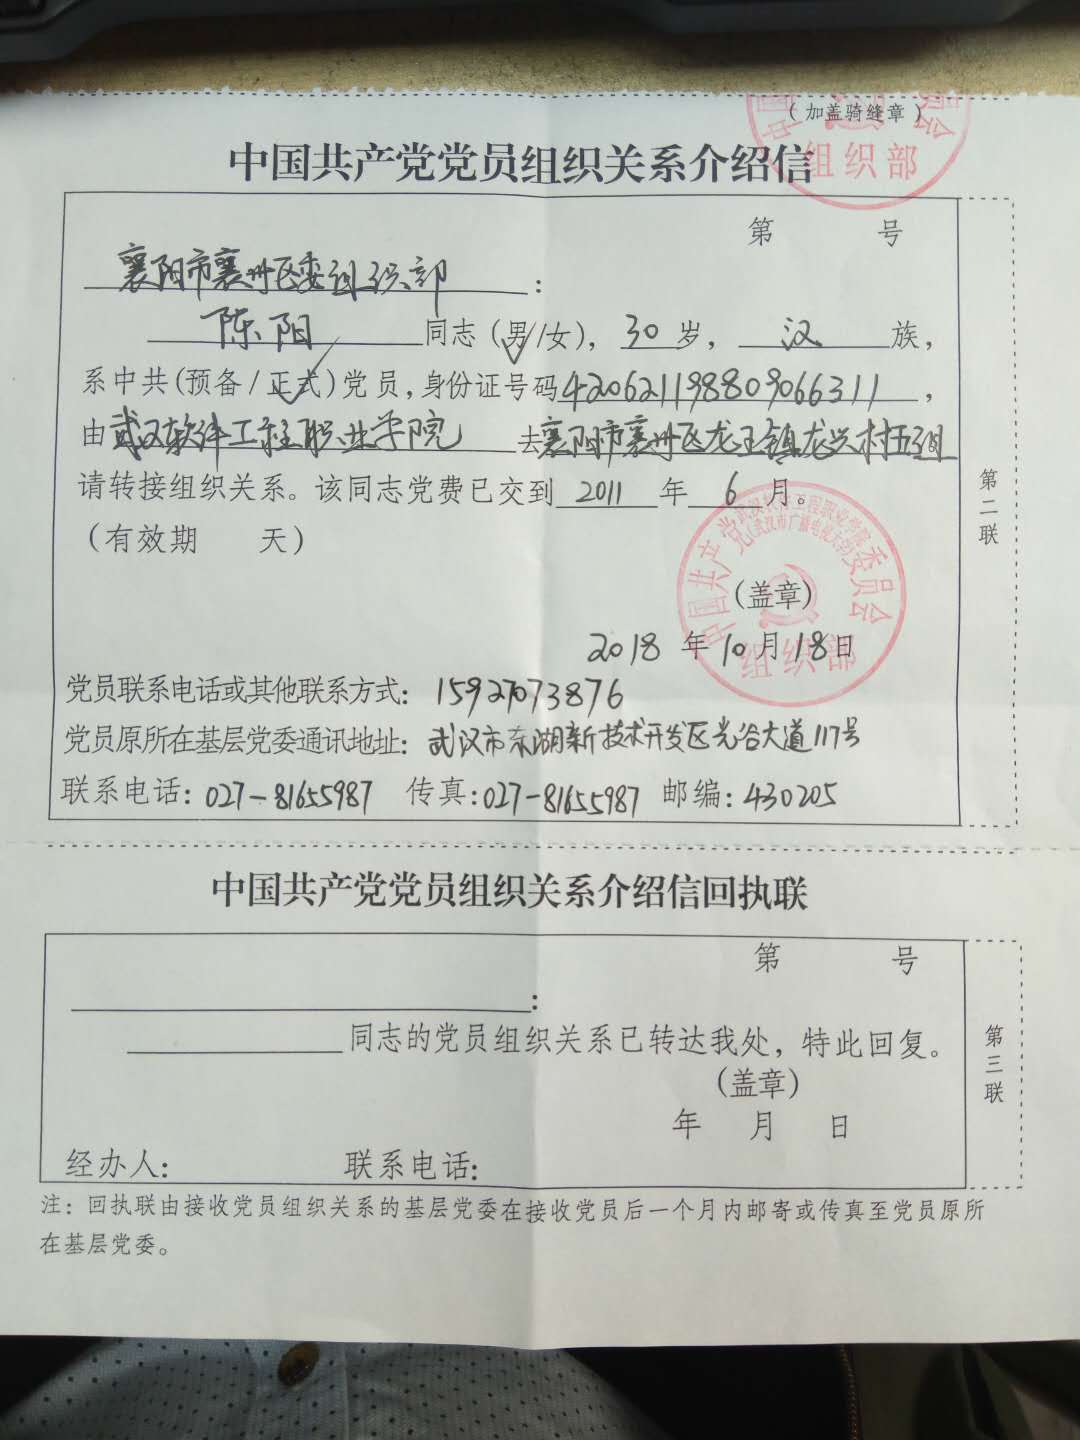 （加盖骑缝章）
中国共产党党员组织关系介绍信
第 号
襄阳市襄州区委组织部：
陈阳同志（男/女），30岁，汉族，
系中共（预备/正式）党员，身份证号码420621198809066311，
由武汉软件工程职业学院去襄阳市襄州区龙王镇龙兴村五组
请转接组织关系。该同志党费已交到2011年6月。
（有效期 天）
（盖章）
2018年10月18日
党员联系电话或其他联系方式：15927073876
党员原所在基层党委通讯地址：武汉市东湖新技术开发区光谷大道117号
联系电话：027-81655987 传真：027-81655987 邮编：430205
第二联
中国共产党武汉软件工程职业学院（武汉市广播电视大学）委员会
组织部
委员会
组织部
中国共产党党员组织关系介绍信回执联
第 号
：
同志的党员组织关系已转达我处，特此回复。
（盖章）
年 月 日
经办人： 联系电话：
第三联
注：回执联由接收党员组织关系的基层党委在接收党员后一个月内邮寄或传真至党员原所
在基层党委。